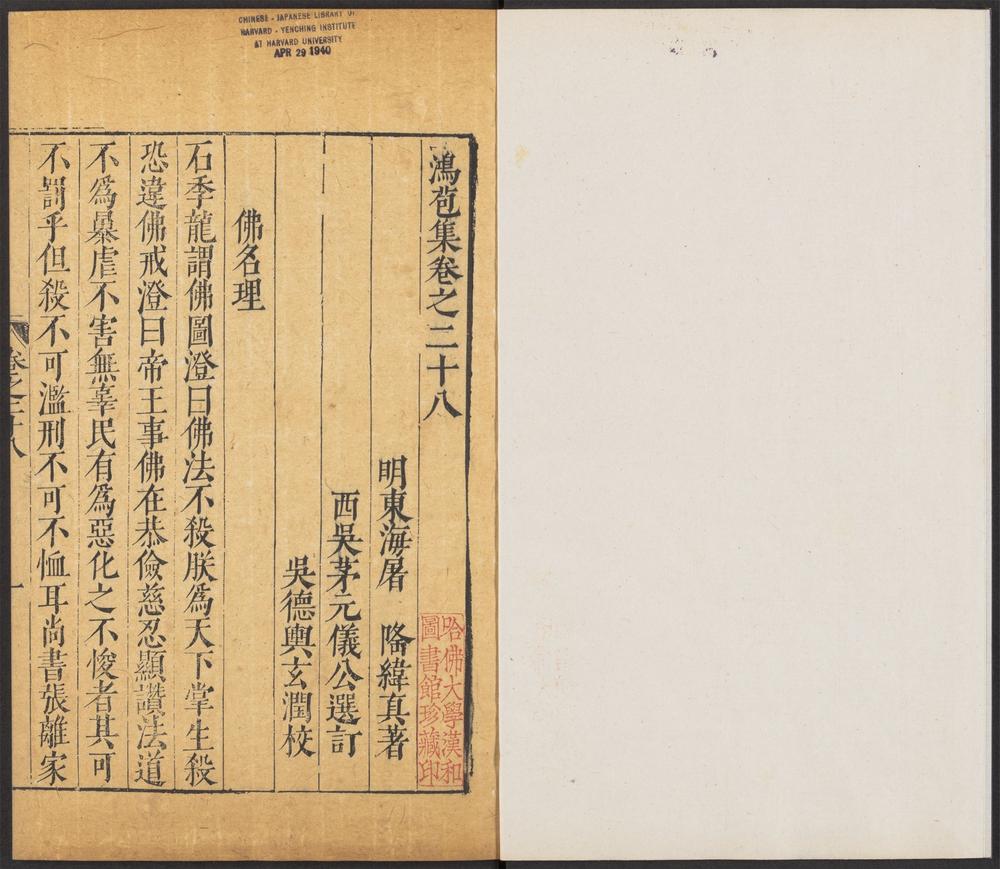 CHINESE - JAPANESE LIBRARY OF
HARVARD - YENCHING INSTITUTE
AT HARVARD UNIVERSITY
APR 29 1940
鴻苞集卷之二十八
明東海屠 隆緯真著
西吳茅元儀公選訂
吳德輿玄潤校
哈佛大學漢和
圖書館珍藏印
佛名理
石季龍謂佛圖澄曰佛法不殺朕爲天下掌生殺
恐違佛戒澄曰帝王事佛在恭儉慈忍顯讚法道
不爲暴虐不害無辜民有爲惡化之不悛者其可
不罰乎但殺不可濫刑不可不恤耳尚書張離家
卷之二十八
一